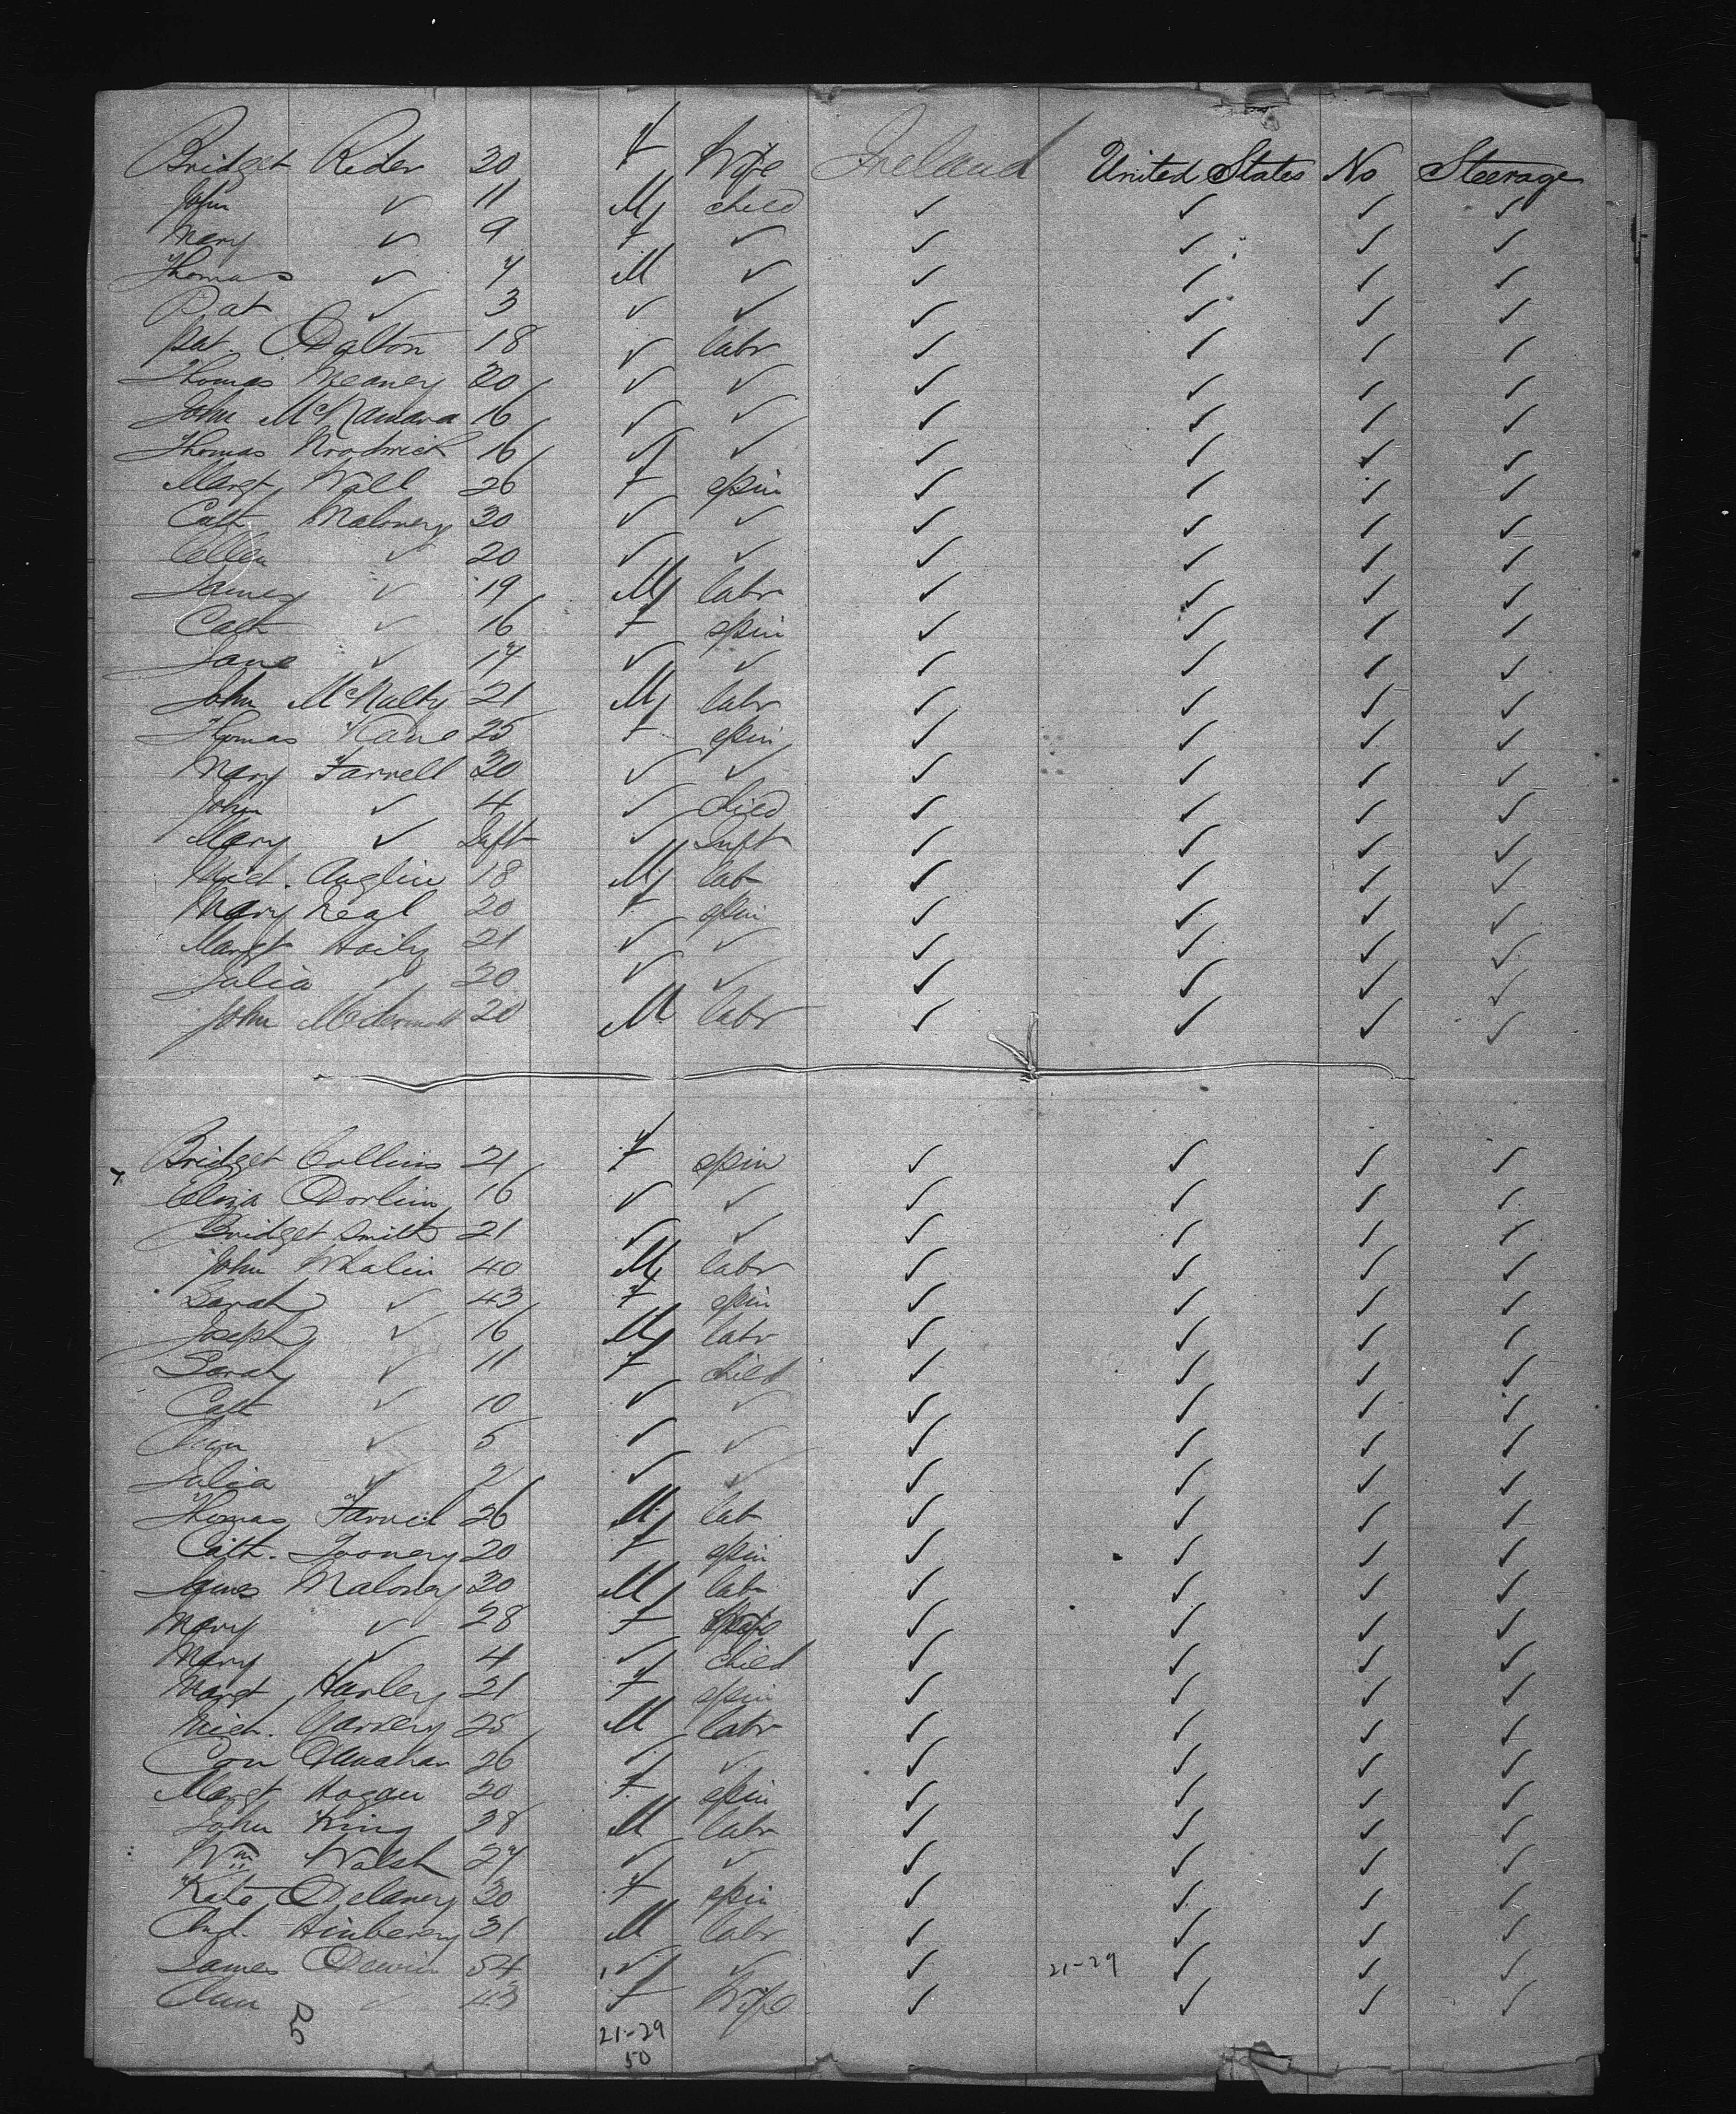 Bridget Rider 30 F Wife Ireland United States No Steerage
John ✓ 11 M child ✓ ✓ ✓ ✓
Mary ✓ 9 F ✓ ✓ ✓ ✓ ✓
Thomas ✓ 7 M ✓ ✓ ✓ ✓ ✓
Pat ✓ 3 ✓ ✓ ✓ ✓ ✓ ✓
Pat Dalton 18 ✓ labr ✓ ✓ ✓ ✓
Thomas Meaney 20 ✓ ✓ ✓ ✓ ✓ ✓
John McNamara 16 ✓ ✓ ✓ ✓ ✓ ✓
Thomas 16 ✓ ✓ ✓ ✓ ✓ ✓
Margt Wall 26 F spin ✓ ✓ ✓ ✓
Cath Maloney 30 ✓ ✓ ✓ ✓ ✓ ✓
Ellen ✓ 20 ✓ ✓ ✓ ✓ ✓ ✓
James ✓ 19 M labr ✓ ✓ ✓ ✓
Cath ✓ 16 F spin ✓ ✓ ✓ ✓
Jane ✓ 17 ✓ ✓ ✓ ✓ ✓ ✓
John McNulty 21 M labr ✓ ✓ ✓ ✓
Thomas Kane 25 F spin ✓ ✓ ✓ ✓
Mary Farrell 30 ✓ ✓ ✓ ✓ ✓ ✓
John ✓ 4 ✓ child ✓ ✓ ✓ ✓
Mary ✓ Inft ✓ Inft ✓ ✓ ✓ ✓
Mich. Anglin 18 M lab ✓ ✓ ✓ ✓
Mary Neal 20 F spin ✓ ✓ ✓ ✓
Margt Haily 21 ✓ ✓ ✓ ✓ ✓ ✓
Julia ✓ 20 ✓ ✓ ✓ ✓ ✓ ✓
John McDermott 20 M labr ✓ ✓ ✓ ✓
Bridget Collins 21 F spin ✓ ✓ ✓ ✓
Eliza 16 ✓ ✓ ✓ ✓ ✓ ✓
Bridget Smith 21 ✓ ✓ ✓ ✓ ✓ ✓
John Whalin 40 M labr ✓ ✓ ✓ ✓
Sarah ✓ 43 F spin ✓ ✓ ✓ ✓
Joseph ✓ 16 M labr ✓ ✓ ✓ ✓
Sarah ✓ 11 F child ✓ ✓ ✓ ✓
Cath ✓ 10 ✓ ✓ ✓ ✓ ✓ ✓
Ann ✓ 5 ✓ ✓ ✓ ✓ ✓ ✓
Julia ✓ 2 ✓ ✓ ✓ ✓ ✓ ✓
Thomas 26 M lab ✓ ✓ ✓ ✓
Cath. 20 F spin ✓ ✓ ✓ ✓
James Maloney 30 M lab ✓ ✓ ✓ ✓
Mary ✓ 28 F ✓ ✓ ✓ ✓
Mary ✓ 4 ✓ child ✓ ✓ ✓ ✓
Margt Hanley 21 F spin ✓ ✓ ✓ ✓
Mich. Garvey 25 M labr ✓ ✓ ✓ ✓
Con 26 ✓ ✓ ✓ ✓ ✓ ✓
Margt Hogan 20 F spin ✓ ✓ ✓ ✓
John King 38 M labr ✓ ✓ ✓ ✓
Wm Walsh 27 ✓ ✓ ✓ ✓ ✓ ✓
Kate Delaney 30 F spin ✓ ✓ ✓ ✓
31 M labr ✓ ✓ ✓ ✓
James 54 ✓ ✓ ✓ 21-29 ✓ ✓ ✓
Ann ✓ 43 F Wife ✓ ✓ ✓ ✓
21-29
50